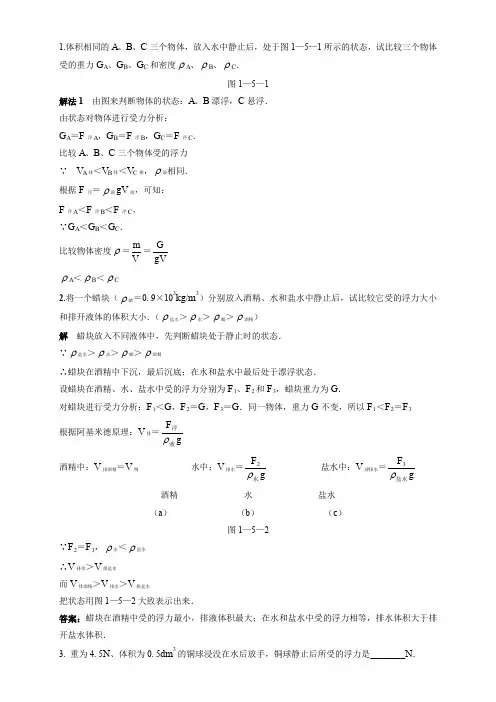 1.体积相同的A、B、C三个物体,放入水中静止后,处于图1—5—1所示的状态,试比较三个物体
受的重力G_A、G_B、G_C和密度ρ_A、ρ_B、ρ_C.
图1—5—1
解法1 由图来判断物体的状态:A、B漂浮,C悬浮.
由状态对物体进行受力分析:
G_A=F_浮A,G_B=F_浮B,G_C=F_浮C.
比较A、B、C三个物体受的浮力
∵ V_A排<V_B排<V_C排,ρ_液相同.
根据F_浮=ρ_液gV_排,可知:
F_浮A<F_浮B<F_浮C,
∵G_A<G_B<G_C.
比较物体密度ρ=m/V=G/gV
ρ_A<ρ_B<ρ_C
2.将一个蜡块(ρ_蜡=0.9×10³kg/m³)分别放入酒精、水和盐水中静止后,试比较它受的浮力大小
和排开液体的体积大小.(ρ_盐水>ρ_水>ρ_蜡>ρ_酒精)
解 蜡块放入不同液体中,先判断蜡块处于静止时的状态.
∵ρ_盐水>ρ_水>ρ_蜡>ρ_酒精
∴蜡块在酒精中下沉,最后沉底;在水和盐水中最后处于漂浮状态.
设蜡块在酒精、水、盐水中受的浮力分别为F₁、F₂和F₃,蜡块重力为G.
对蜡块进行受力分析:F₁<G,F₂=G,F₃=G.同一物体,重力G不变,所以F₁<F₂=F₃
根据阿基米德原理:V_排=F_浮/ρ_液g
酒精中:V_排酒精=V_物 水中:V_排水=F₂/ρ_水g 盐水中:V_排盐水=F₃/ρ_盐水g
酒精 水 盐水
(a) (b) (c)
图1—5—2
∵F₂=F₃,ρ_水<ρ_盐水
∴V_排水>V_排盐水
而V_排酒精>V_排水>V_排盐水
把状态用图1—5—2大致表示出来.
答案:蜡块在酒精中受的浮力最小,排液体积最大;在水和盐水中受的浮力相等,排水体积大于排
开盐水体积.
3. 重为4.5N、体积为0.5dm³的铜球浸没在水后放手,铜球静止后所受的浮力是________N.